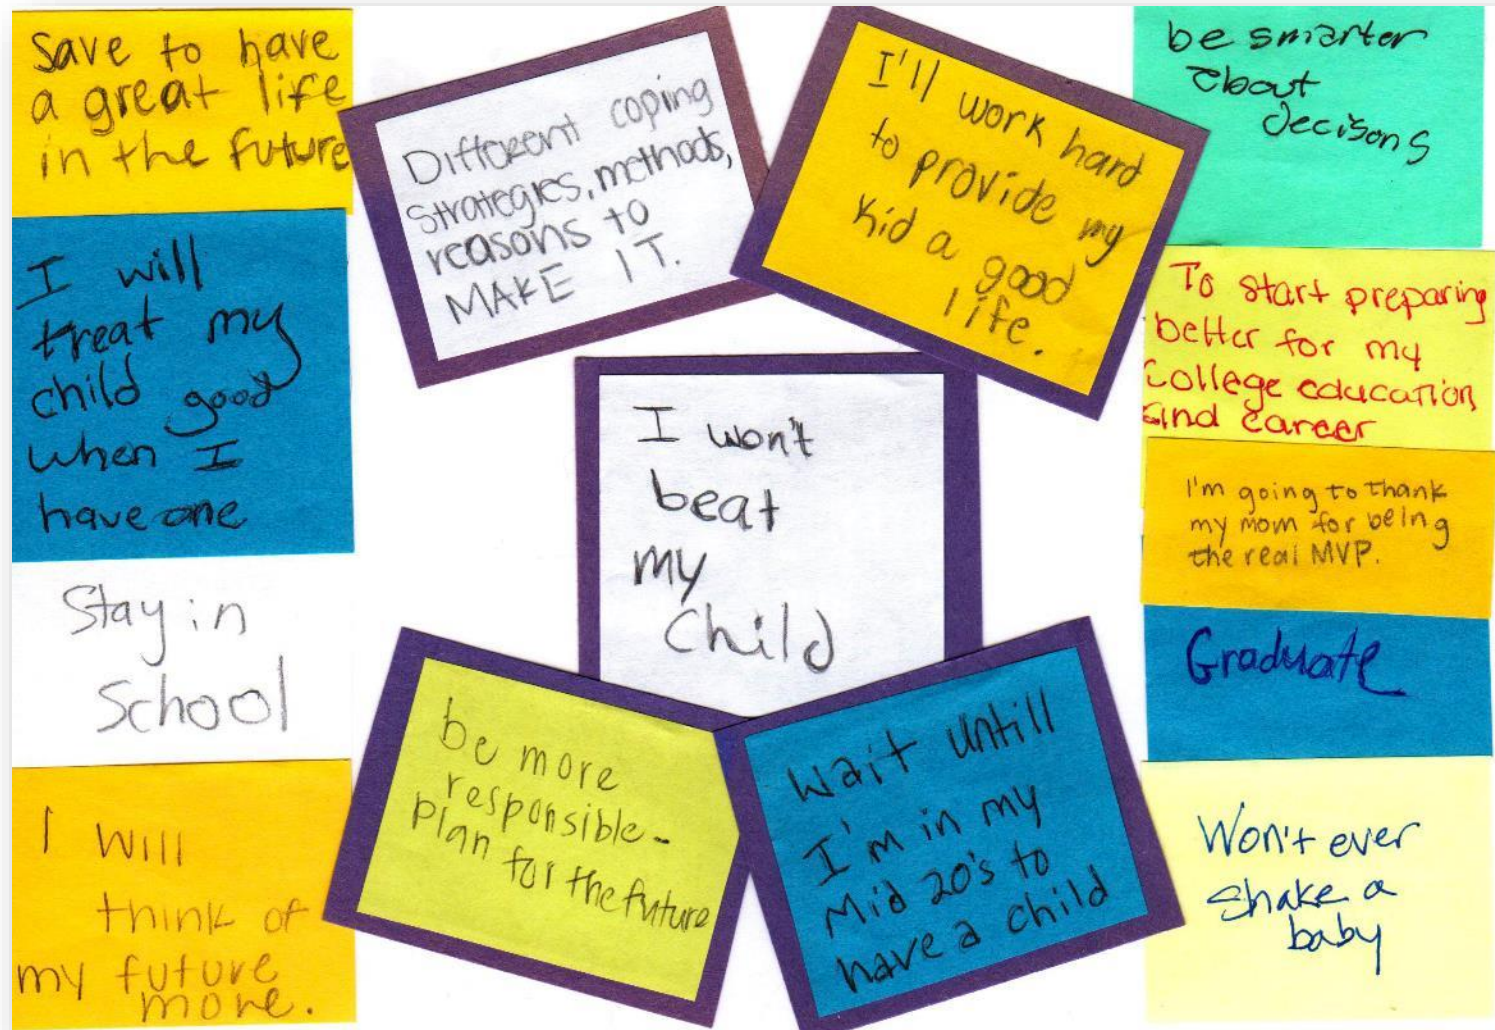 Save to have
a great life
in the future
I will
treat my
child good
when I
have one
Stay in
School
I will
think of
my future
more.
Different coping
strategies, methods,
reasons to
MAKE IT.
I'll work hard
to provide my
kid a good
life.
I won't
beat
my
Child
be more
responsible-
plan for the future
wait untill
I'm in my
Mid 20's to
have a child
be smarter
about
decisons
To start preparing
better for my
College education
and career
I'm going to thank
my mom for being
the real MVP.
Graduate
Won't ever
shake a
baby